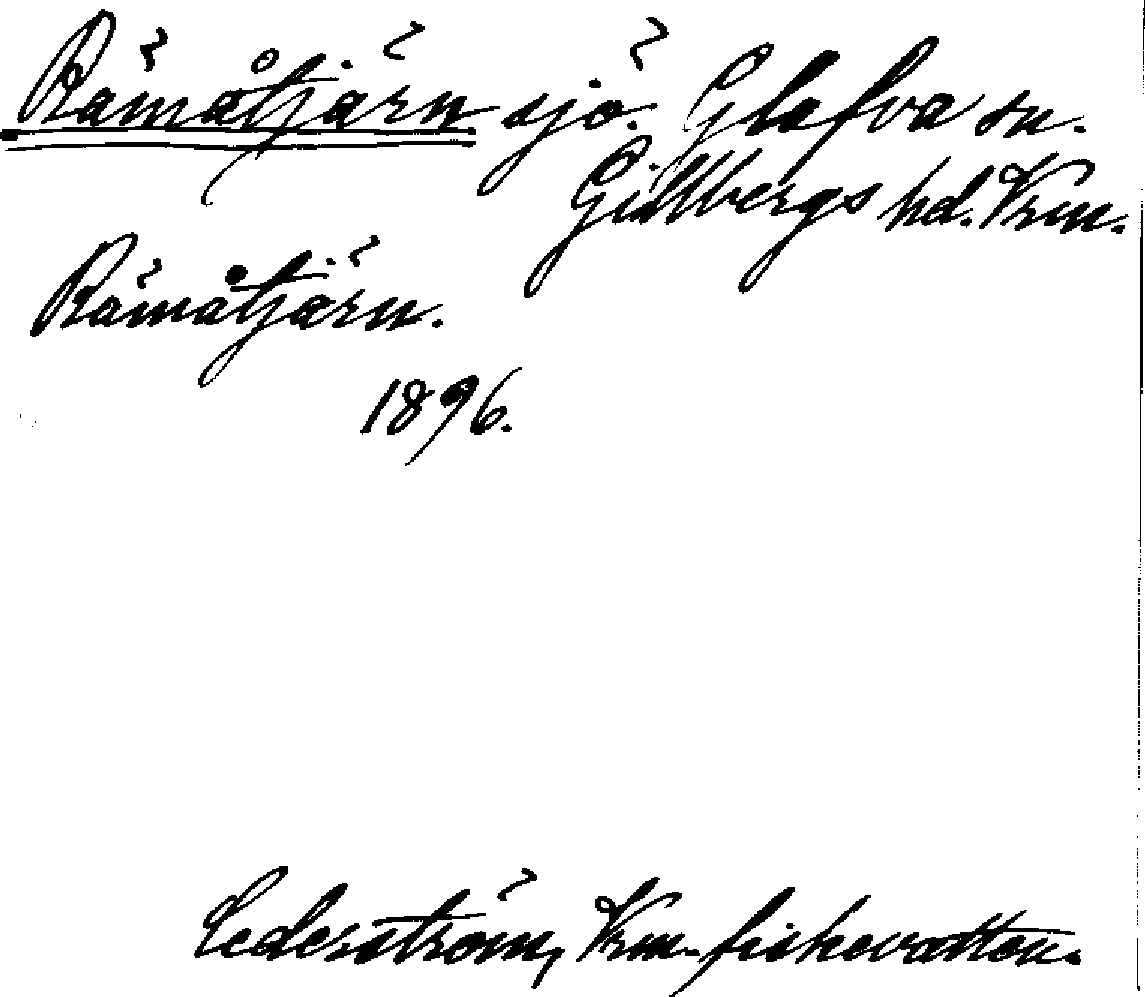 Rämåtjärn sjö. Glafva sn.
Gillbergs hd. Vrm.
Rämåtjärn.
1896.
Cederström, Vrm. fiskevatten.